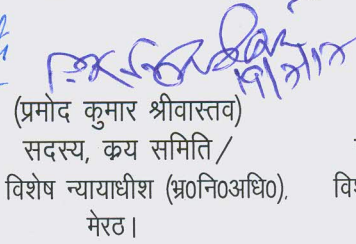 (प्रमोद कुमार श्रीवास्तव)
सदस्य, क्रय समिति /
विशेष न्यायाधीश (भ्र0नि0अधि0),
मेरठ।